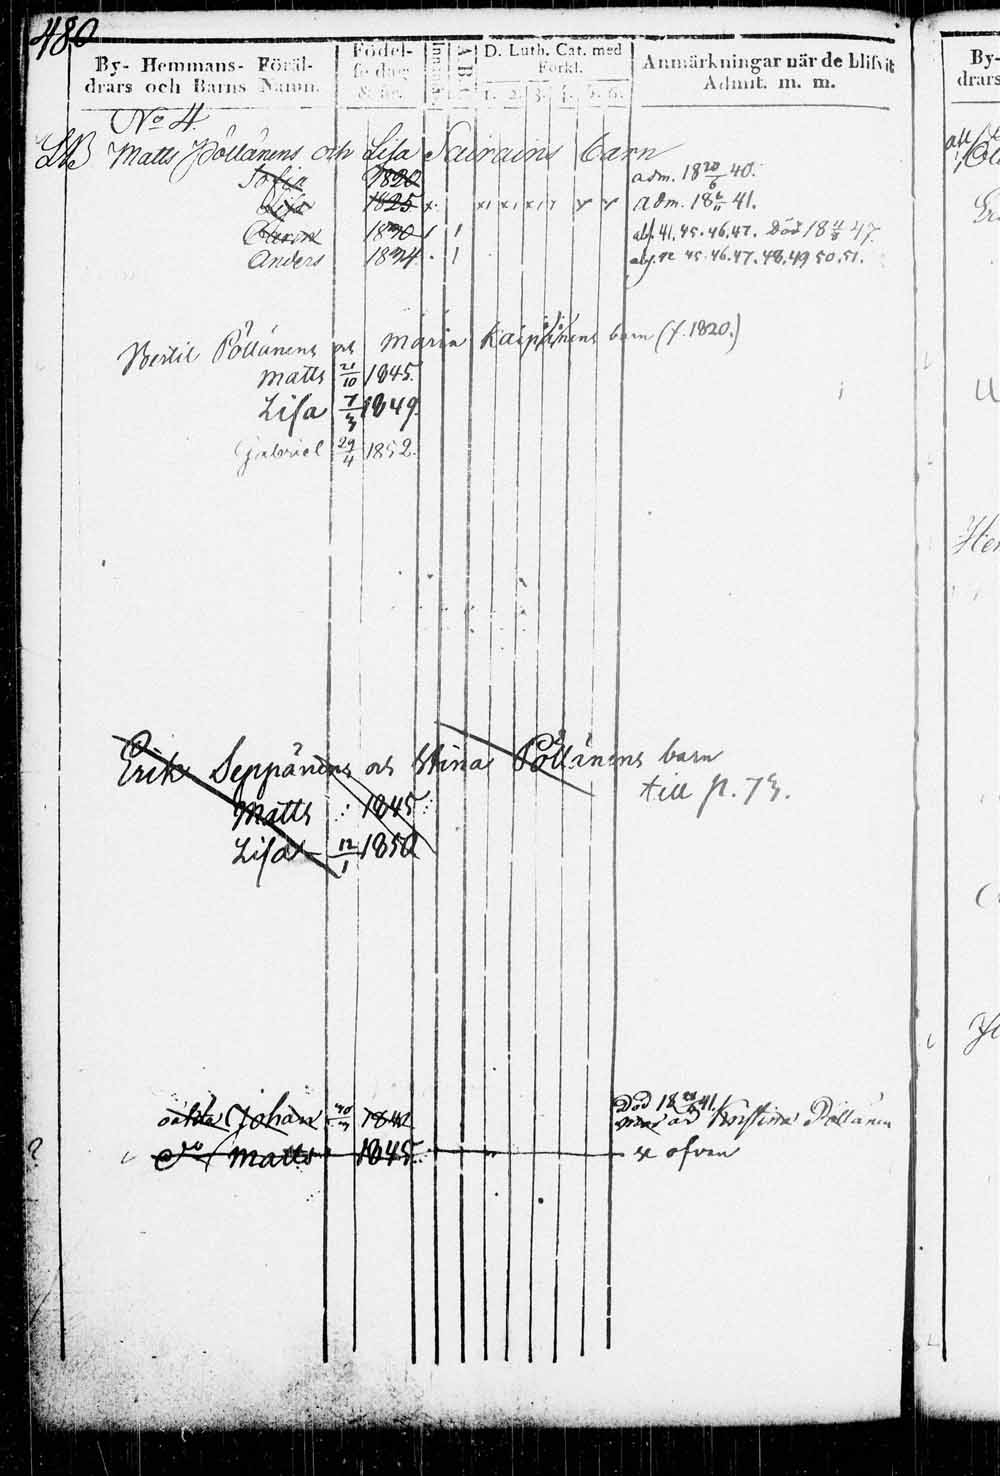 480
By- Hemmans- Föräl-
drars och Barns Namn.
Födel-
se dag
& år.
Innant.
A B C
D. Luth. Cat. med
Förkl.
1. 2. 3. 4. 5. 6.
Anmärkningar när de blifvit
Admit. m. m.
By-
drars
No 4.
Matts Pöllänens och Lisa Sairains barn
Sofia 1820 adm. 18 20/6 40.
Lisa 1825 x adm. 18 6/11 41.
1830 1 1 abs. 41. 45. 46. 47. Död 18 47.
Anders 1834 1 abs. 45. 46. 47. 48. 49 50. 51.
Bertil Pöllänens och Maria barn (f. 1820.)
Matts 21/10 1845.
Lisa 7/3 1849
Gabriel 29/4 1852.
Erik Seppänens och Stina Pöllänens barn
till p. 73.
Matts 1845
Lisa 12/1 1850
Johan 1842 Död 18 41
Kristina Pöllänen
do Matts 1845 se ofvan